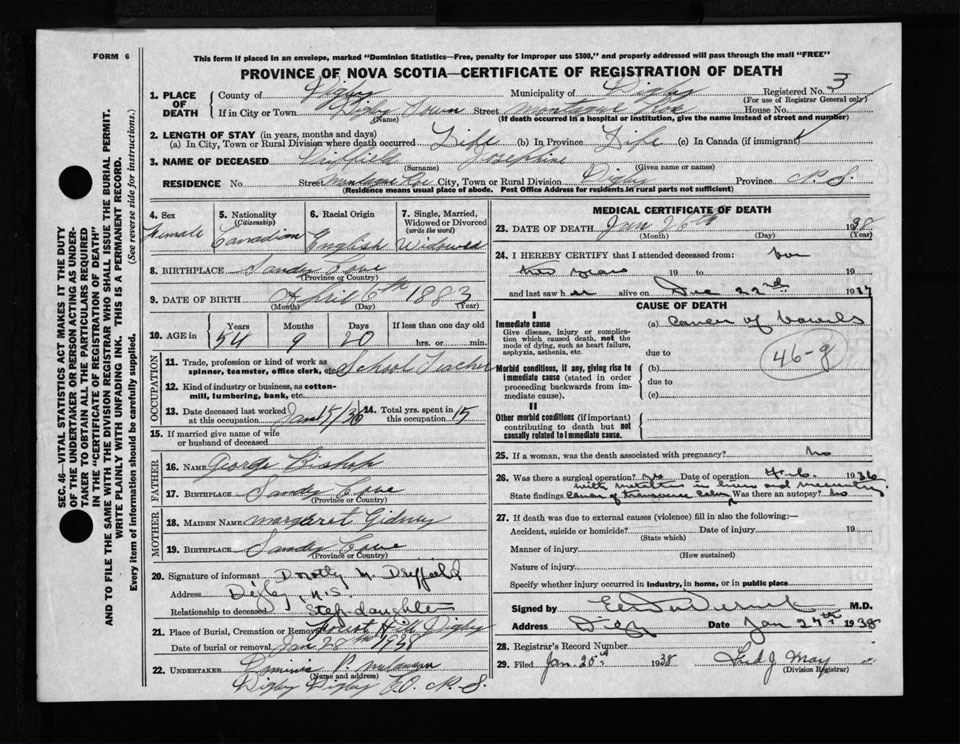 FORM 6
This form if placed in an envelope, marked "Dominion Statistics—Free, penalty for improper use $300," and properly addressed will pass through the mail "FREE"
PROVINCE OF NOVA SCOTIA—CERTIFICATE OF REGISTRATION OF DEATH
1. PLACE OF DEATH
County of Digby Municipality of Digby Registered No. 3
(For use of Registrar General only)
If in City or Town Digby Town Street Montague Row House No.
(Name) (If death occurred in a hospital or institution, give the name instead of street and number)
2. LENGTH OF STAY (in years, months and days)
(a) In City, Town or Rural Division where death occurred Life (b) In Province Life (c) In Canada (if immigrant)
3. NAME OF DECEASED Josephine
(Surname) (Given name or names)
RESIDENCE No. Street Montague Row City, Town or Rural Division Digby Province N. S.
(Residence means usual place of abode. Post Office Address for residents in rural parts not sufficient)
SEC. 46—VITAL STATISTICS ACT MAKES IT THE DUTY
OF THE UNDERTAKER OR PERSON ACTING AS UNDER-
TAKER TO OBTAIN ALL THE PARTICULARS REQUIRED
IN THE "CERTIFICATE OF REGISTRATION OF DEATH"
AND TO FILE THE SAME WITH THE DIVISION REGISTRAR WHO SHALL ISSUE THE BURIAL PERMIT.
WRITE PLAINLY WITH UNFADING INK. THIS IS A PERMANENT RECORD.
Every item of information should be carefully supplied. (See reverse side for instructions.)
4. Sex Female
5. Nationality (Citizenship) Canadian
6. Racial Origin English
7. Single, Married, Widowed or Divorced (write the word) Widowed
8. BIRTHPLACE Sandy Cove
(Province or Country)
9. DATE OF BIRTH April 6th 1883
(Month) (Day) (Year)
10. AGE in Years 54 Months 9 Days 20 If less than one day old hrs. or min.
OCCUPATION
11. Trade, profession or kind of work as spinner, teamster, office clerk, etc. School Teacher
12. Kind of industry or business, as cotton-mill, lumbering, bank, etc.
13. Date deceased last worked at this occupation Jan 15/36
14. Total yrs. spent in this occupation 15
15. If married give name of wife or husband of deceased
FATHER
16. NAME George Bishop
17. BIRTHPLACE Sandy Cove
(Province or Country)
MOTHER
18. MAIDEN NAME Margaret Gidney
19. BIRTHPLACE Sandy Cove
(Province or Country)
20. Signature of informant Dorothy M.
Address Digby, N.S.
Relationship to deceased Step-daughter
21. Place of Burial, Cremation or Removal Forest Hill Digby
Date of burial or removal Jan 28th 1938
22. UNDERTAKER P.
(Name and address)
Digby Digby Co. N. S.
MEDICAL CERTIFICATE OF DEATH
23. DATE OF DEATH Jan 26th 1938
(Month) (Day) (Year)
24. I HEREBY CERTIFY that I attended deceased from
two years 19 to 19
and last saw her alive on Dec 22nd 1937
CAUSE OF DEATH
I
Immediate cause
Give disease, injury or complication which caused death, not the mode of dying, such as heart failure, asphyxia, asthenia, etc.
(a) Cancer of bowels
46-g
due to
Morbid conditions, if any, giving rise to immediate cause (stated in order proceeding backwards from immediate cause).
(b)
due to
(c)
II
Other morbid conditions (if important) contributing to death but not causally related to immediate cause.
25. If a woman, was the death associated with pregnancy? No
26. Was there a surgical operation? Yes Date of operation Feb 1936
State findings Cancer of transverse Colon Was there an autopsy? No
with in liver and mesentery
27. If death was due to external causes (violence) fill in also the following:—
Accident, suicide or homicide? Date of injury 19
(State which)
Manner of injury
(How sustained)
Nature of injury
Specify whether injury occurred in industry, in home, or in public place
Signed by M.D.
Address Digby Date Jan 27th 1938
28. Registrar's Record Number
29. Filed Jan. 25th 1938 Fred J. May
(Division Registrar)